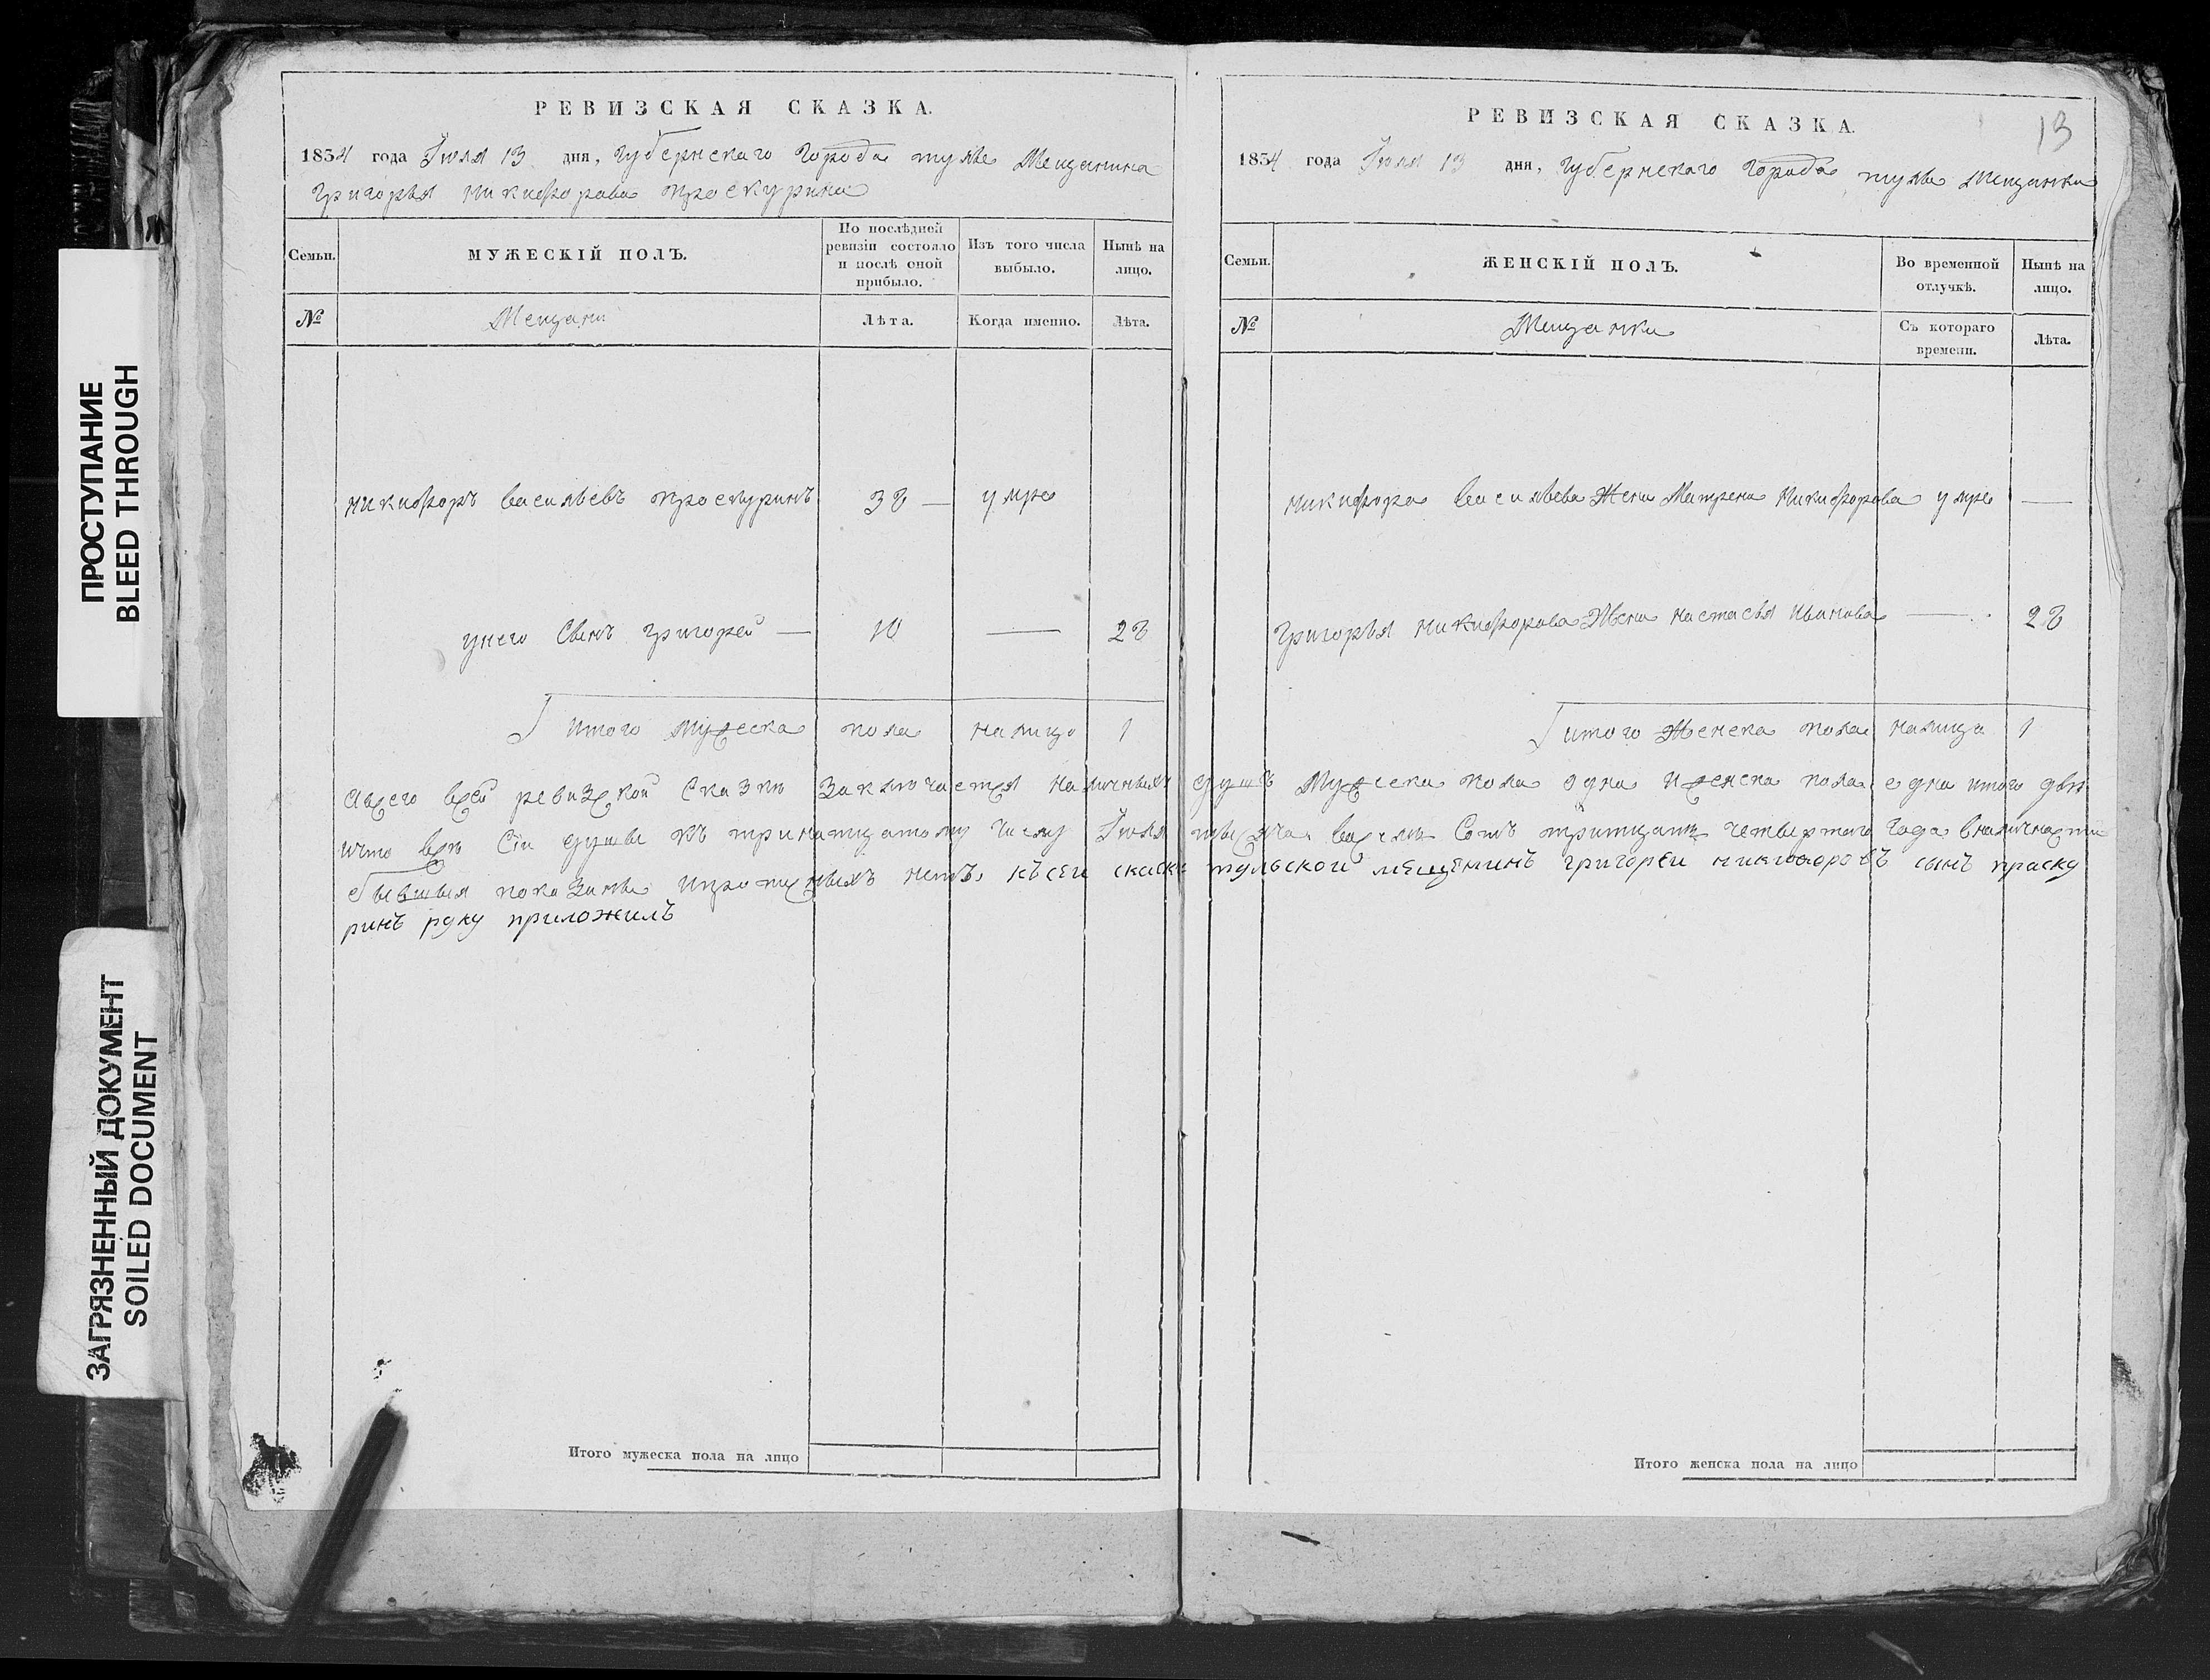 РЕВИЗСКАЯ СКАЗКА.
1834 года Июля 13 дня, Губернскаго Города Тулы Мещанина
Григорья Никифорова Проскурина
Семьи.
МУЖЕСКІЙ ПОЛЪ.
По послѣдней ревизіи состояло и послѣ оной прибыло.
Изъ того числа выбыло.
Нынѣ на лицо.
№
Мещани
Лѣта.
Когда именно.
Лѣта.
Никифоръ Васильевъ Проскуринъ 38 — умре
унего Сынъ Григорей — 10 — 28
Итого Мужеска пола налицо 1
Итого мужеска пола на лицо
РЕВИЗСКАЯ СКАЗКА.
13
1834 года Июля 13 дня, Губернскаго Города Тулы Мещанки
Семьи.
ЖЕНСКІЙ ПОЛЪ.
Во временной отлучкѣ.
Нынѣ на лицо.
№
Мещанки
Съ котораго времени.
Лѣта.
Никифора Васильева Жена Матрена Никифорова умре —
Григорья Никифорова Жена Настасья Иванова — 28
итого Женска пола налицо 1
Авсего всей ревизкой Сказки Заключается наличныхъ душъ Мужеска пола одна Иженска пола една итого двѣ
ичто всѣ Сіи душы къ тринатцатому числу Июля тысяча васемь Сотъ тритцать четвертаго Года вналичнасти
бывшыя показаны ипрапущеныхъ нетъ, къ сеи скаски тульскои мещенинъ григореи никифоровъ сынъ праску
ринъ руку приложилъ
Итого женска пола на лицо
ПРОСТУПАНИЕ
BLEED THROUGH
ЗАГРЯЗНЕННЫЙ ДОКУМЕНТ
SOILED DOCUMENT